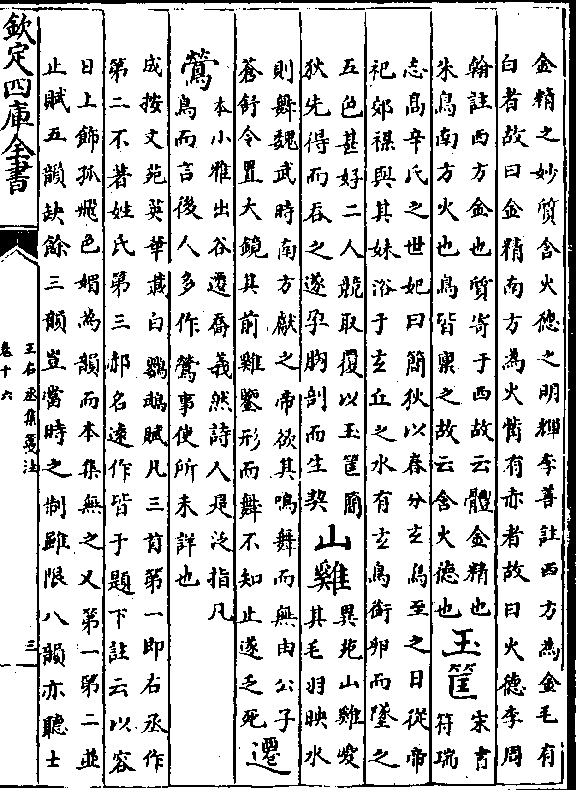 金精之妙質含火德之明輝李善註西方為金毛有
白者故曰金精南方為火觜有赤者故曰火德李周
翰註西方金也質寄于西故云體金精也
朱鳥南方火也鳥皆稟之故云含火德也
玉筐
宋書
符瑞
志高辛氏之世妃曰簡狄以春分玄鳥至之日從帝
祀郊禖與其妹浴于玄丘之水有玄鳥銜卵而墜之
五色甚好二人競取覆以玉筐簡
狄先得而吞之遂孕胸剖而生契
山雞
異苑山雞愛
其毛羽映水
則舞魏武時南方獻之帝欲其鳴舞而無由公子
蒼舒令置大鏡其前雞鑒形而舞不知止遂乏死
遷
鶯
本小雅出谷遷喬義然詩人是泛指凡
鳥而言後人多作鶯事使所未詳也
成按文苑英華載白鸚鵡賦凡三首第一即右丞作
第二不著姓氏第三郝名遠作皆于題下註云以容
日上飾孤飛色媚為韻而本集無之又第一第二並
止賦五韻缺餘三韻豈當時之制雖限八韻亦聽士
欽定四庫全書
王右丞集箋注
卷十六
三